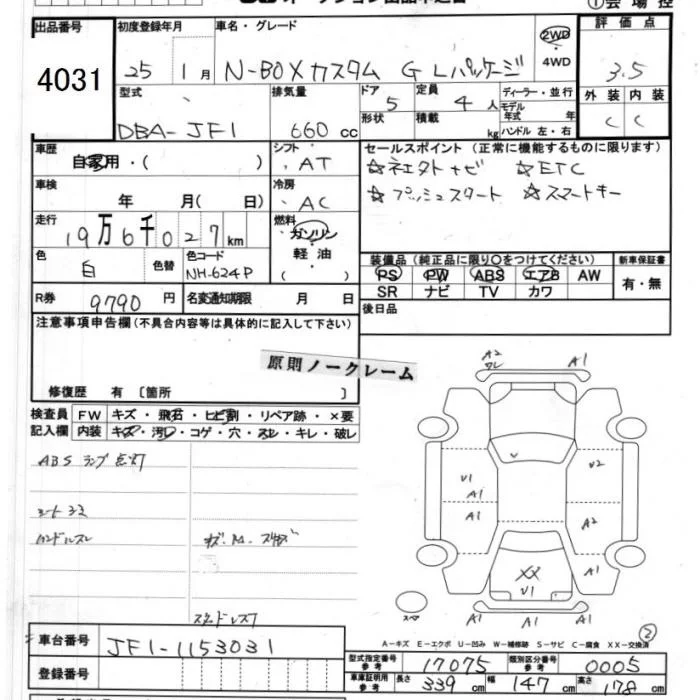 出品番号 初度登録年月 車名・グレード 評価点
4031 25年 1月 N-BOXカスタム G Lパッケージ 2WD 4WD 3.5
型式 排気量 ドア 5 定員 4人 ディーラー・並行 外装 内装
DBA-JF1 660cc 形状 積載 kg モデル年式 年 ハンドル 左・右 C C
車歴 自家用・( ) シフト AT セールスポイント(正常に機能するものに限ります)
車検 年 月( 日) 冷房 AC ☆ETC
☆プッシュスタート ☆スマートキー
走行 19万6千027km 燃料 ガソリン 軽油 ( )
色 白 色替 色コード NH-624P
装備品(純正品に限り○をつけてください) 新車保証書
PS PW ABS エアB AW 有・無
SR ナビ TV カワ
R券 9790円 名変通知期限 月 日 後日品
注意事項申告欄(不具合内容等は具体的に記入して下さい)
原則ノークレーム
修復歴 有 〔箇所 〕
検査員 FW キズ・飛石・ヒビ割・リペア跡・×要
記入欄 内装 キズ・汚レ・コゲ・穴・スレ・キレ・破レ
ABSランプ点灯
シートヨゴ
ハンドルスレ
A2 ワレ A1
V1 A1 U2
A1 A2
XX V1
A1 A1
A1 A1
スペア
2
A-キズ E-エクボ U-凹み W-補修跡 S-サビ C-腐食 XX-交換済
車台番号 JF1-1153031
型式指定番号 参考 17075 類別区分番号 参考 0005
登録番号
車庫証明用 参考 長さ 339cm 幅 147cm 高さ 178cm